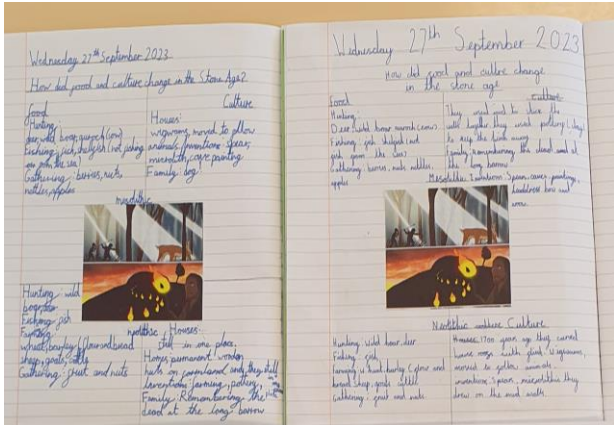 Wednesday 27th September 2023
How did food and culture change in the Stone Age?
food
Culture
Hunting:
deer, wild boar, aurochs (cow)
Fishing: fish, shellfish (not fishing
on the sea)
Gathering: berries, nuts
nettles, apples
Houses:
wigwams, moved to follow
animals, Inventions: spear,
microlith, cave painting
Family: dog
mesolithic
Hunting: wild
boar, deer
Fishing: fish
Farming:
wheat, barley (flour and bread
sheep, goats, cattle
Gathering: fruit and nuts
neolithic Houses:
stay in one place,
Homes, permanent wooden
huts on farmland
Inventions: farming, pottery,
Family: Remembering the
dead at the long barrow
Wednesday 27th September 2023
How did food and culture change
in the stone age
Food
Hunting:
Deer, wild boar, aurochs (cows)
Fishing: fish shellfish (not
fish from the sea)
Gathering: berries, nuts, nettles,
apples
Culture
They used to stick the
walls together they used pottery (clay)
to keep the
Family: Remembering the dead and at
the long barrow
Mesolithic Inventions: Spear, caves, paintings,
bow and
arrow.
Neolithic culture Culture
Hunting: wild boar, deer
Fishing: fish
Farming: wheat, barley (flour and
bread sheep, goats cattle
Gathering: fruit and nuts
Houses: years ago they carved
with flint. Wigwams,
moved to follow animals.
inventions: Spear, microliths they
drew on the mud walls